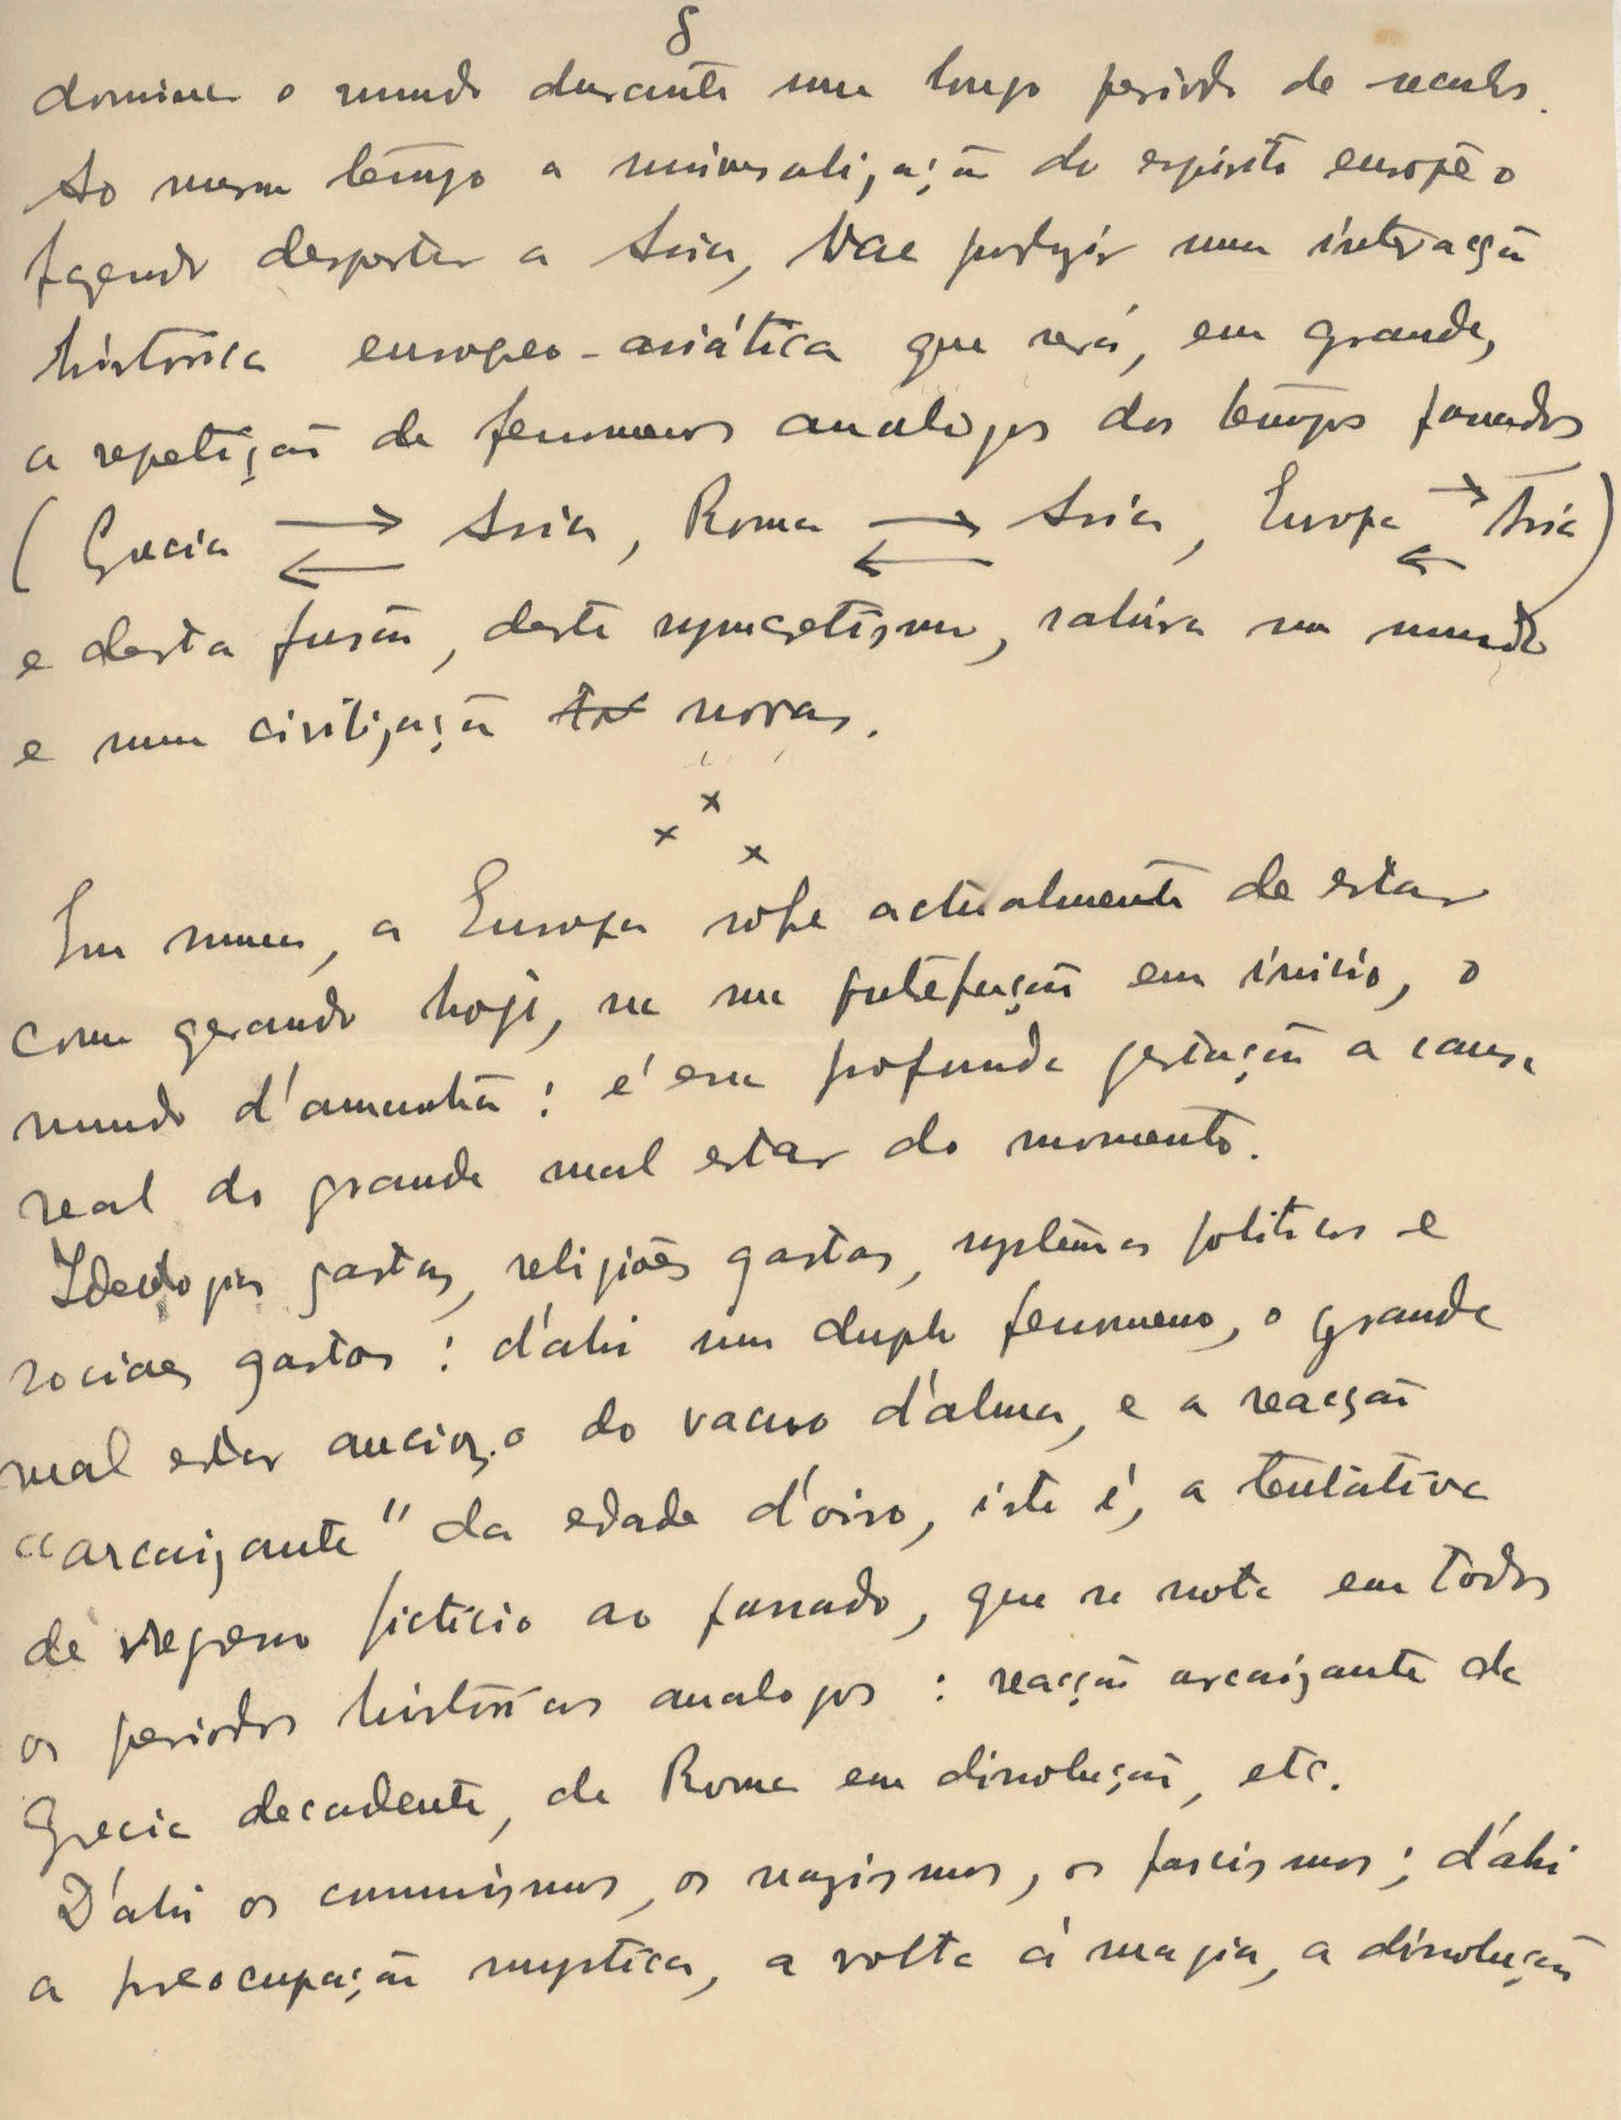 8
dominar o mundo durante um longo periodo de seculos.
Ao mesmo tempo a universalização do espirito europêo
fazendo despertar a Asia, vae produzir uma interacção
histórica europeo-asiática que será, em grande,
a repetição de fenomenos analogos dos tempos passados
(Grecia ⇄ Asia, Roma ⇄ Asia, Europa ⇄ Asia)
e desta fusão, deste syncretismo, sahirá um mundo
e uma civilização novas.
x x x
Em summa, a Europa sofre actualmente de estar
como gerando hoje, na sua putrefacção em inicio, o
mundo d'amanhã: é essa profunda gestação a causa
real do grande mal estar do momento.
Ideologias gastas, religiões gastas, systemas politicos e
sociaes gastos: d'ahi um duplo fenomeno, o grande
mal estar ancioso do vacuo d'alma, e a reacção
"arcaizante" da edade d'oiro, isto é, a tentativa
de regresso ficticio ao passado, que se nota em todos
os periodos históricos analogos: reacção arcaizante da
Grecia decadente, da Roma em dissolução, etc.
D'ahi os comunismos, os nazismos, os fascismos; d'ahi
a preocupação mystica, a volta á magia, a dissolução